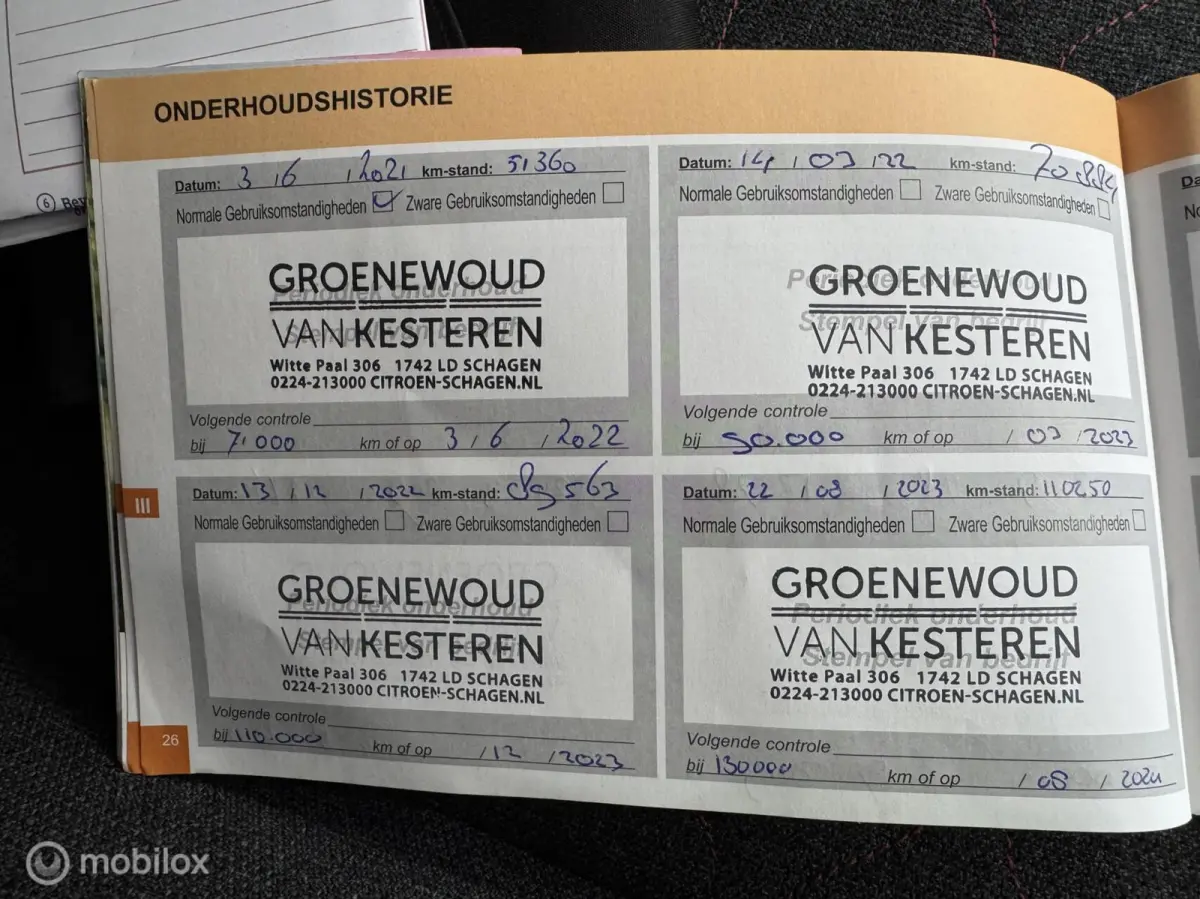 ONDERHOUDSHISTORIE
Datum: 3 / 6 / 2021 km-stand: 51360
Normale Gebruiksomstandigheden Zware Gebruiksomstandigheden
Periodiek onderhoud
Stempel van bedrijf
GROENEWOUD
VAN KESTEREN
Witte Paal 306 1742 LD SCHAGEN
0224-213000 CITROEN-SCHAGEN.NL
Volgende controle
bij 71000 km of op 3 / 6 / 2022
Datum: 14 / 03 / 22 km-stand: 70884
Normale Gebruiksomstandigheden Zware Gebruiksomstandigheden
Periodiek onderhoud
Stempel van bedrijf
GROENEWOUD
VAN KESTEREN
Witte Paal 306 1742 LD SCHAGEN
0224-213000 CITROEN-SCHAGEN.NL
Volgende controle
bij 90.000 km of op / 03 / 2023
III
Datum: 13 / 12 / 2022 km-stand: 89563
Normale Gebruiksomstandigheden Zware Gebruiksomstandigheden
Periodiek onderhoud
Stempel van bedrijf
GROENEWOUD
VAN KESTEREN
Witte Paal 306 1742 LD SCHAGEN
0224-213000 CITROEN-SCHAGEN.NL
Volgende controle
bij 110.000 km of op / 12 / 2023
Datum: 22 / 08 / 2023 km-stand: 110250
Normale Gebruiksomstandigheden Zware Gebruiksomstandigheden
Periodiek onderhoud
Stempel van bedrijf
GROENEWOUD
VAN KESTEREN
Witte Paal 306 1742 LD SCHAGEN
0224-213000 CITROEN-SCHAGEN.NL
Volgende controle
bij 130000 km of op / 08 / 2024
26
mobilox